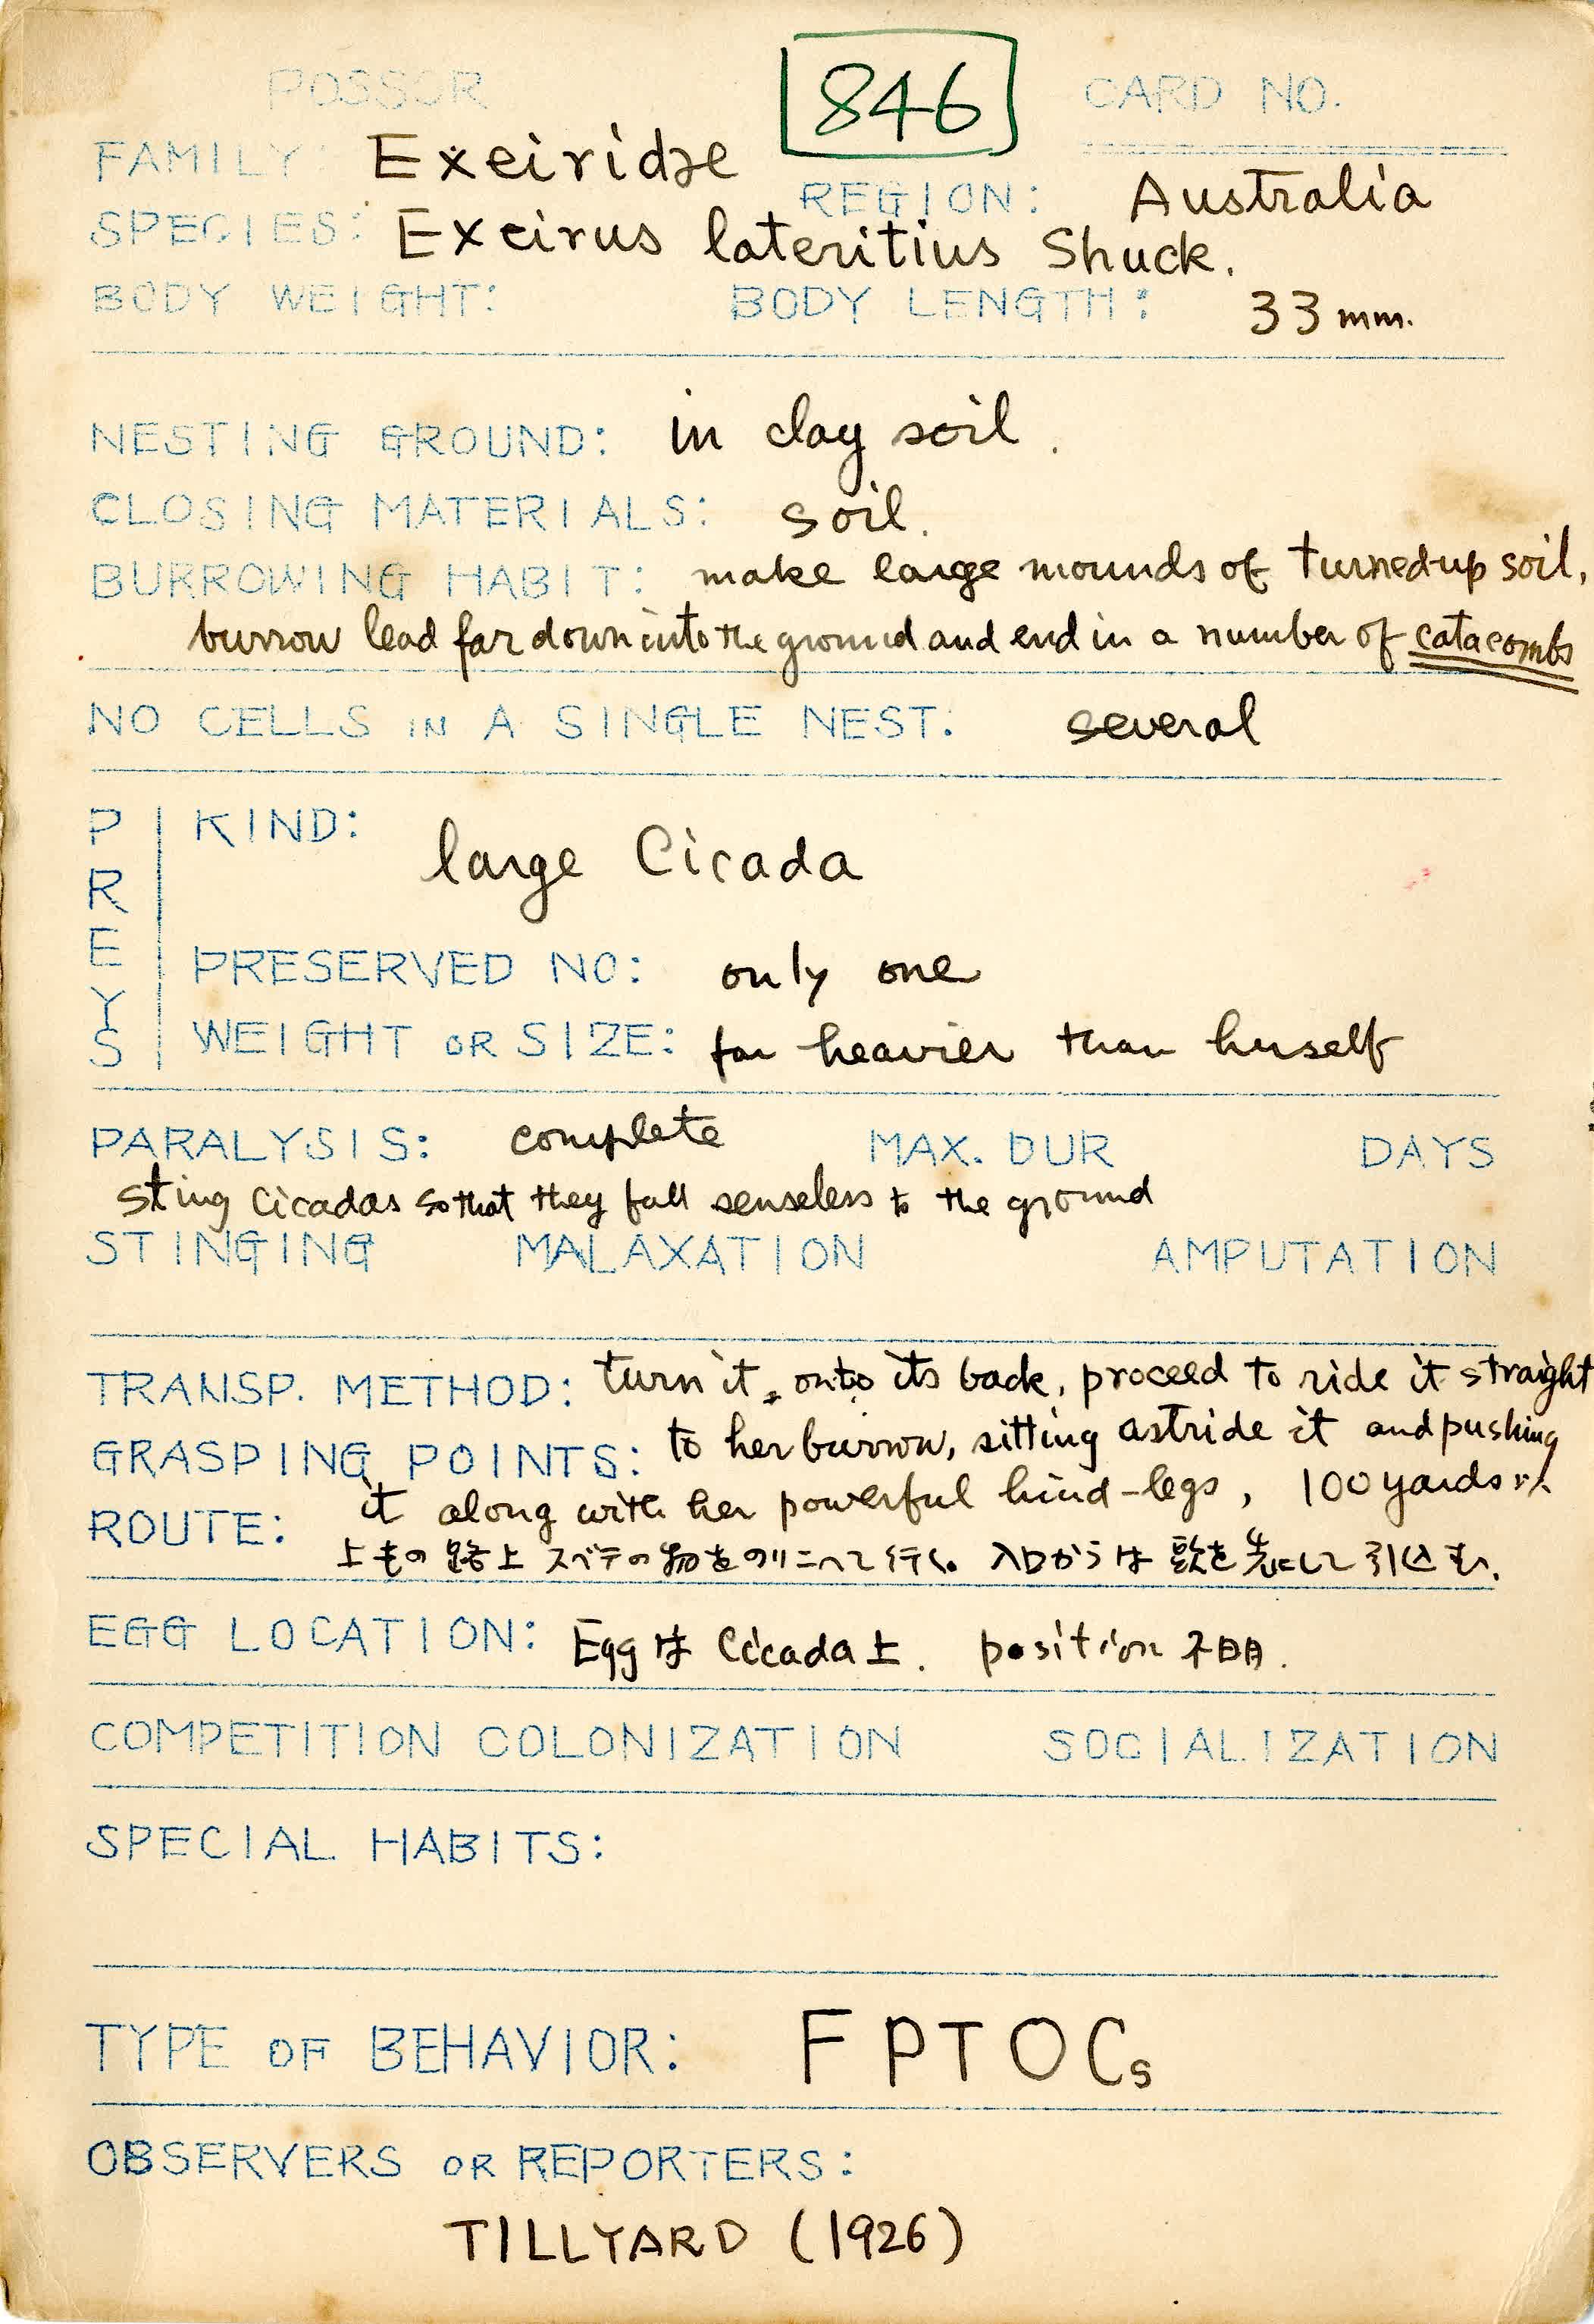 POSSOR 846 CARD NO.
FAMILY: Exeiridae
REGION: Australia
SPECIES: Exeirus lateritius Shuck.
BODY WEIGHT: BODY LENGTH: 33 mm.
NESTING GROUND: in clay soil.
CLOSING MATERIALS: soil.
BURROWING HABIT: make large mounds of turned-up soil,
burrow lead far down into the ground and end in a number of catacombs
NO CELLS IN A SINGLE NEST: several
PREYS
KIND: large Cicada
PRESERVED NO: only one
WEIGHT OR SIZE: far heavier than herself
PARALYSIS: complete MAX. DUR DAYS
sting Cicadas so that they fall senseless to the ground
STINGING MALAXATION AMPUTATION
TRANSP. METHOD: turn it onto its back, proceed to ride it straight
GRASPING POINTS: to her burrow, sitting astride it and pushing
it along with her powerful hind-legs, 100 yards
ROUTE:
路上 スベテの物をのりこへて行く。入口からは頭を先にして引込む.
EGG LOCATION: Egg は Cicada 上. position 不明.
COMPETITION COLONIZATION SOCIALIZATION
SPECIAL HABITS:
TYPE OF BEHAVIOR: FPTOCs
OBSERVERS OR REPORTERS:
TILLYARD (1926)